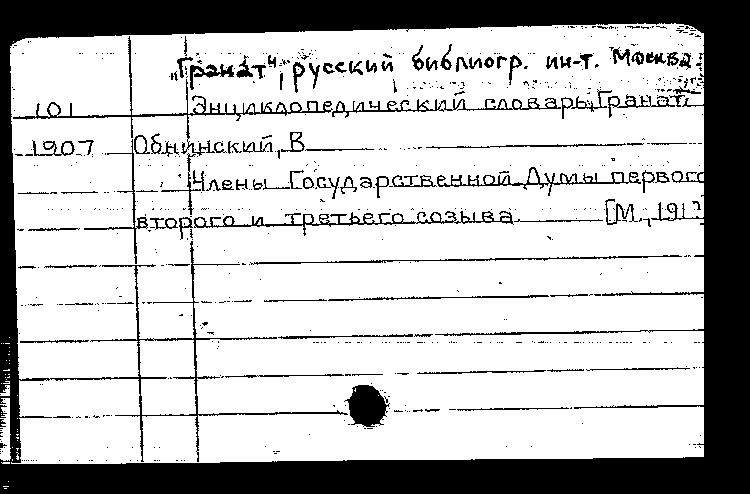 „Гранат“, русский библиогр. ин-т. Москва.
101 Энциклопедический словарь Гранат
1907 Обнинский, В
Члены Государственной Думы первого
второго и третьего созыва [М.,